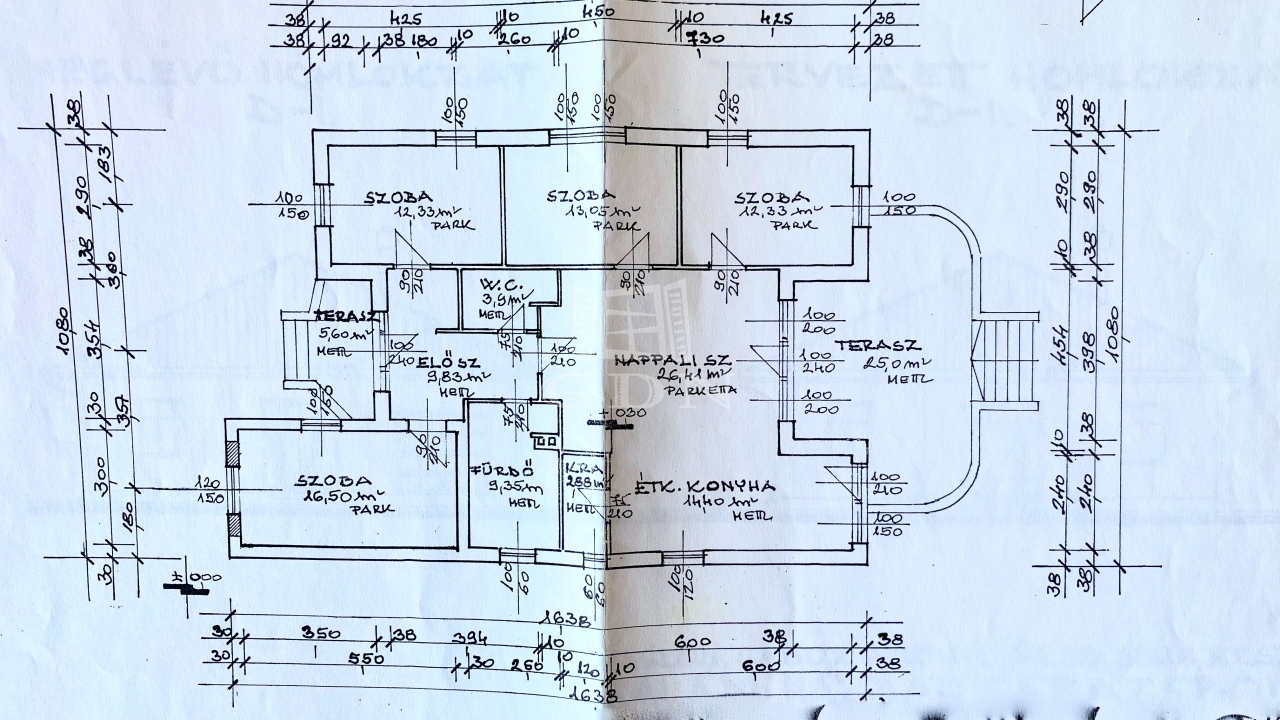 38 425 10 450 10 425 38
38 92 38 180 10 260 10 730 38
MEGLEVO HOMLOKZAT
TERVEZETT HOMLOKZAT
D-1.
100
150
100
150
100
150
100
150
38
290
38
354
30
300
30
183
360
357
180
1080
100
150
SZOBA
12,33 m²
PARK
SZOBA
13,05 m²
PARK
SZOBA
12,33 m²
PARK
100
150
90
210
90
210
90
210
W.C.
3,9 m²
METL
75
210
TERASZ
5,60 m²
METL
100
240
ELŐSZ
9,83 m²
METL
100
210
NAPPALI SZ
26,41 m²
PARKETTA
100
200
100
240
100
200
TERASZ
25,0 m²
METL
100
150
90
210
75
210
+ 030
120
150
SZOBA
16,50 m²
PARK
FÜRDŐ
9,35 m
METL
KRA
2,88 m²
METL
75
210
ÉTK. KONYHA
14,40 m²
METL
100
210
100
150
100
60
60
60
100
120
± 000
38
290
10
454
10
240
38
38
290
38
398
38
240
38
1080
1638
30 350 38 394 10 600 38 38
30 550 30 260 10 120 10 600 38
1638